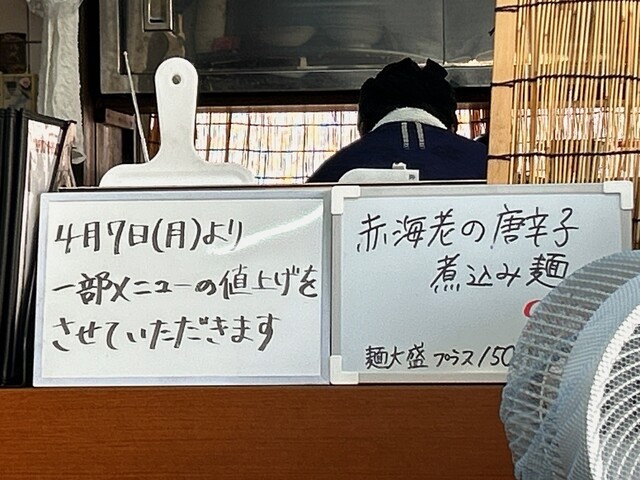 4月7日(月)より
一部メニューの値上げを
させていただきます
赤海老の唐辛子
煮込み麺
麺大盛プラス150